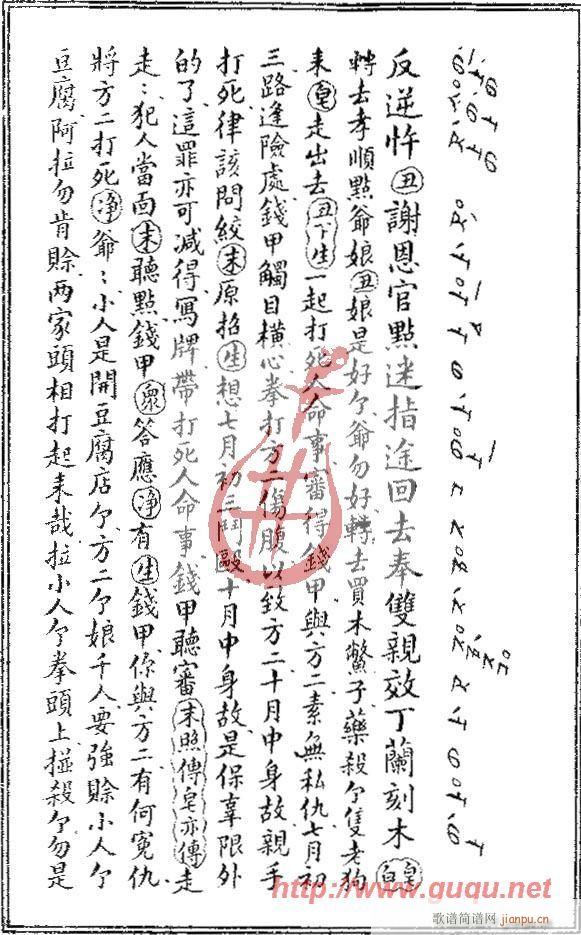 反逆忤丑謝恩官點迷指途回去奉雙親效丁蘭刻木皂
轉去孝順點爺娘丑娘是好个爺勿好轉去買木鱉子藥殺个隻老狗
末皂走出去丑下生一起打死人命事審得錢甲與方二素無私仇七月初
三路逢險處錢甲觸目橫心拳打方二傷腹以致方二十月中身故親手
打死律該問絞末原招生想七月初三鬥毆十月中身故是保辜限外
的了這罪亦可減得寫牌帶打死人命事錢甲聽審末照傳皂亦傳走
走：犯人當面末聽點錢甲眾答應净有生錢甲你與方二有何冤仇
將方二打死净爺：小人是開豆腐店个方二个娘千人要強賒小人个
豆腐阿拉勿肯賒两家頭相打起来哉拉小人个拳頭上掽殺个勿是
http://www.guqu.net
歌谱简谱网
jianpu.cn